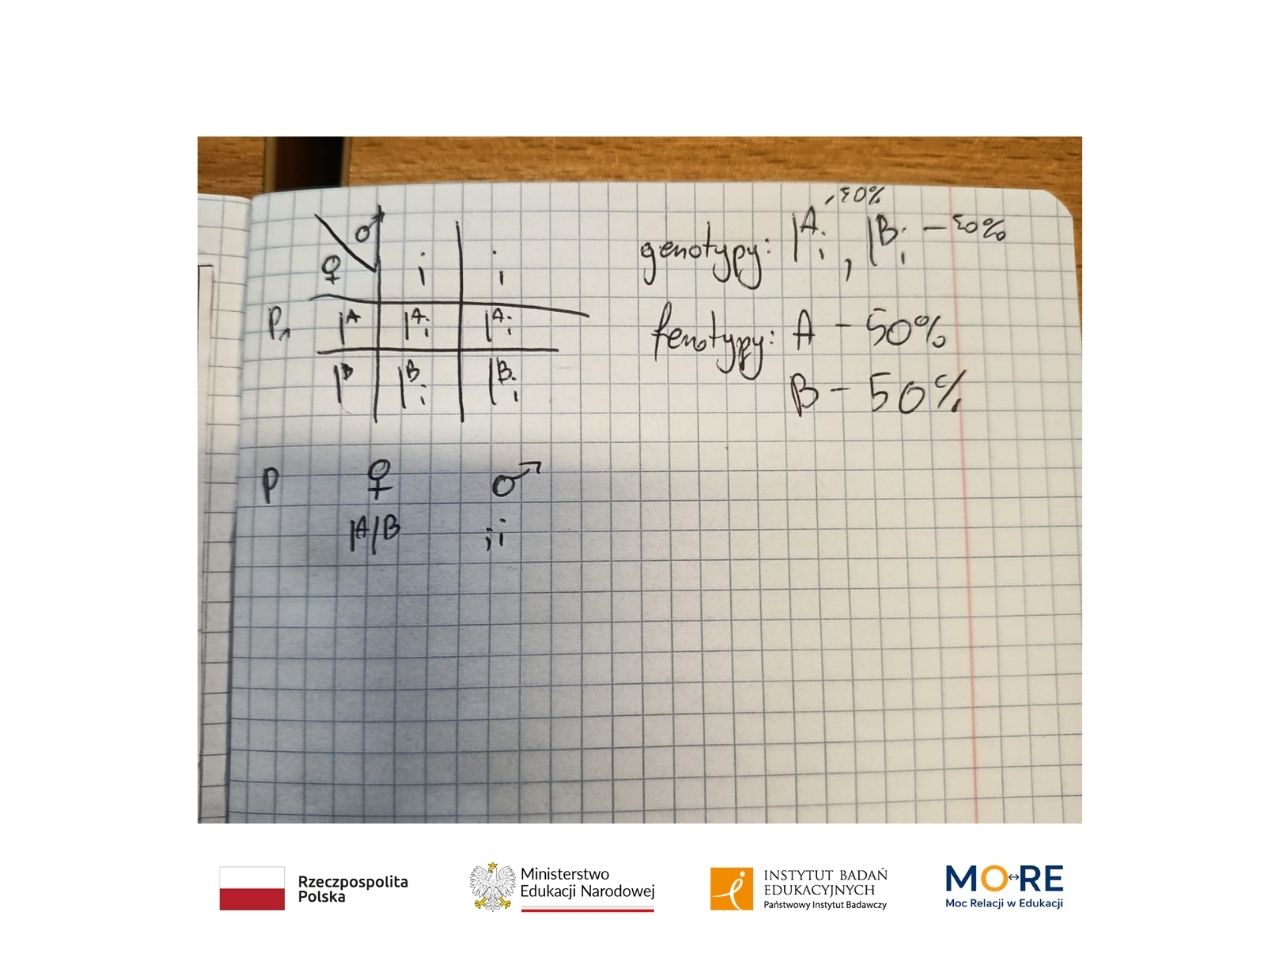 ♀ ♂ i i
P₁ I^A I^A i I^A i
I^B I^B i I^B i
genotypy: I^A i - 50%, I^B i - 50%
fenotypy: A - 50%
B - 50%
P ♀ ♂
I^A I^B ii
Rzeczpospolita
Polska
Ministerstwo
Edukacji Narodowej
INSTYTUT BADAŃ
EDUKACYJNYCH
Państwowy Instytut Badawczy
MO↔RE
Moc Relacji w Edukacji